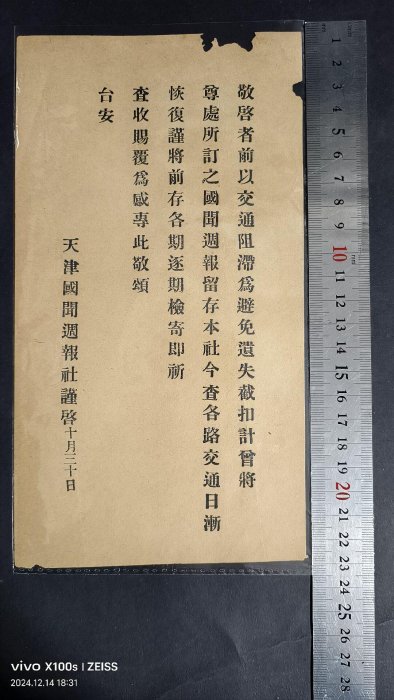 敬啓者前以交通阻滯爲避免遺失截扣計曾將
尊處所訂之國聞週報留存本社今查各路交通日漸
恢復謹將前存各期逐期檢寄即祈
查收賜覆爲感專此敬頌
台安
天津國聞週報社謹啓十月三十日
1
2
3
4
5
6
7
8
9
10
11
12
13
14
15
16
17
18
19
20
21
22
23
24
25
26
27
28
vivo X100s | ZEISS
2024.12.14 18:31